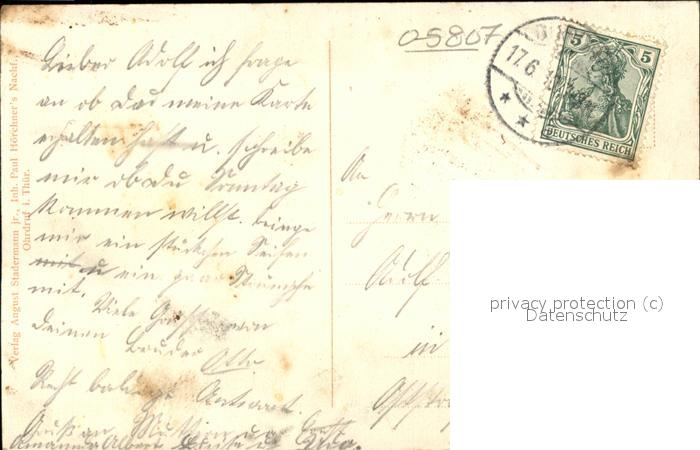 05807
17.6
5 5
DEUTSCHES REICH
Lieber Adolf ich frage
an ob du meine Karte
erhalten hast u. schreibe
mir ob du Sonntag
kommen willst. bringe
mir ein stückchen Seifen
mit u ein paar Strümpfe
mit.
Viele Grüße von
deinen bruder
Otto.
Recht baldige Antwort.
Gruß an Mutter u.
Albert
An
Herrn
Adolf
in
Verlag August Stadermann jr., Inh. Paul Hörchner's Nachf.,
Ohrdruf i. Thür.
privacy protection (c)
Datenschutz